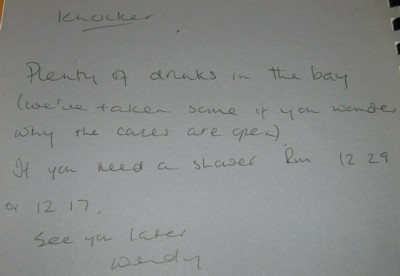 Knocker
Plenty of drinks in the bay
(we've taken some if you wonder
why the cases are open)
If you need a shower Rm 12 29
or 12 17.
See you later
Wendy